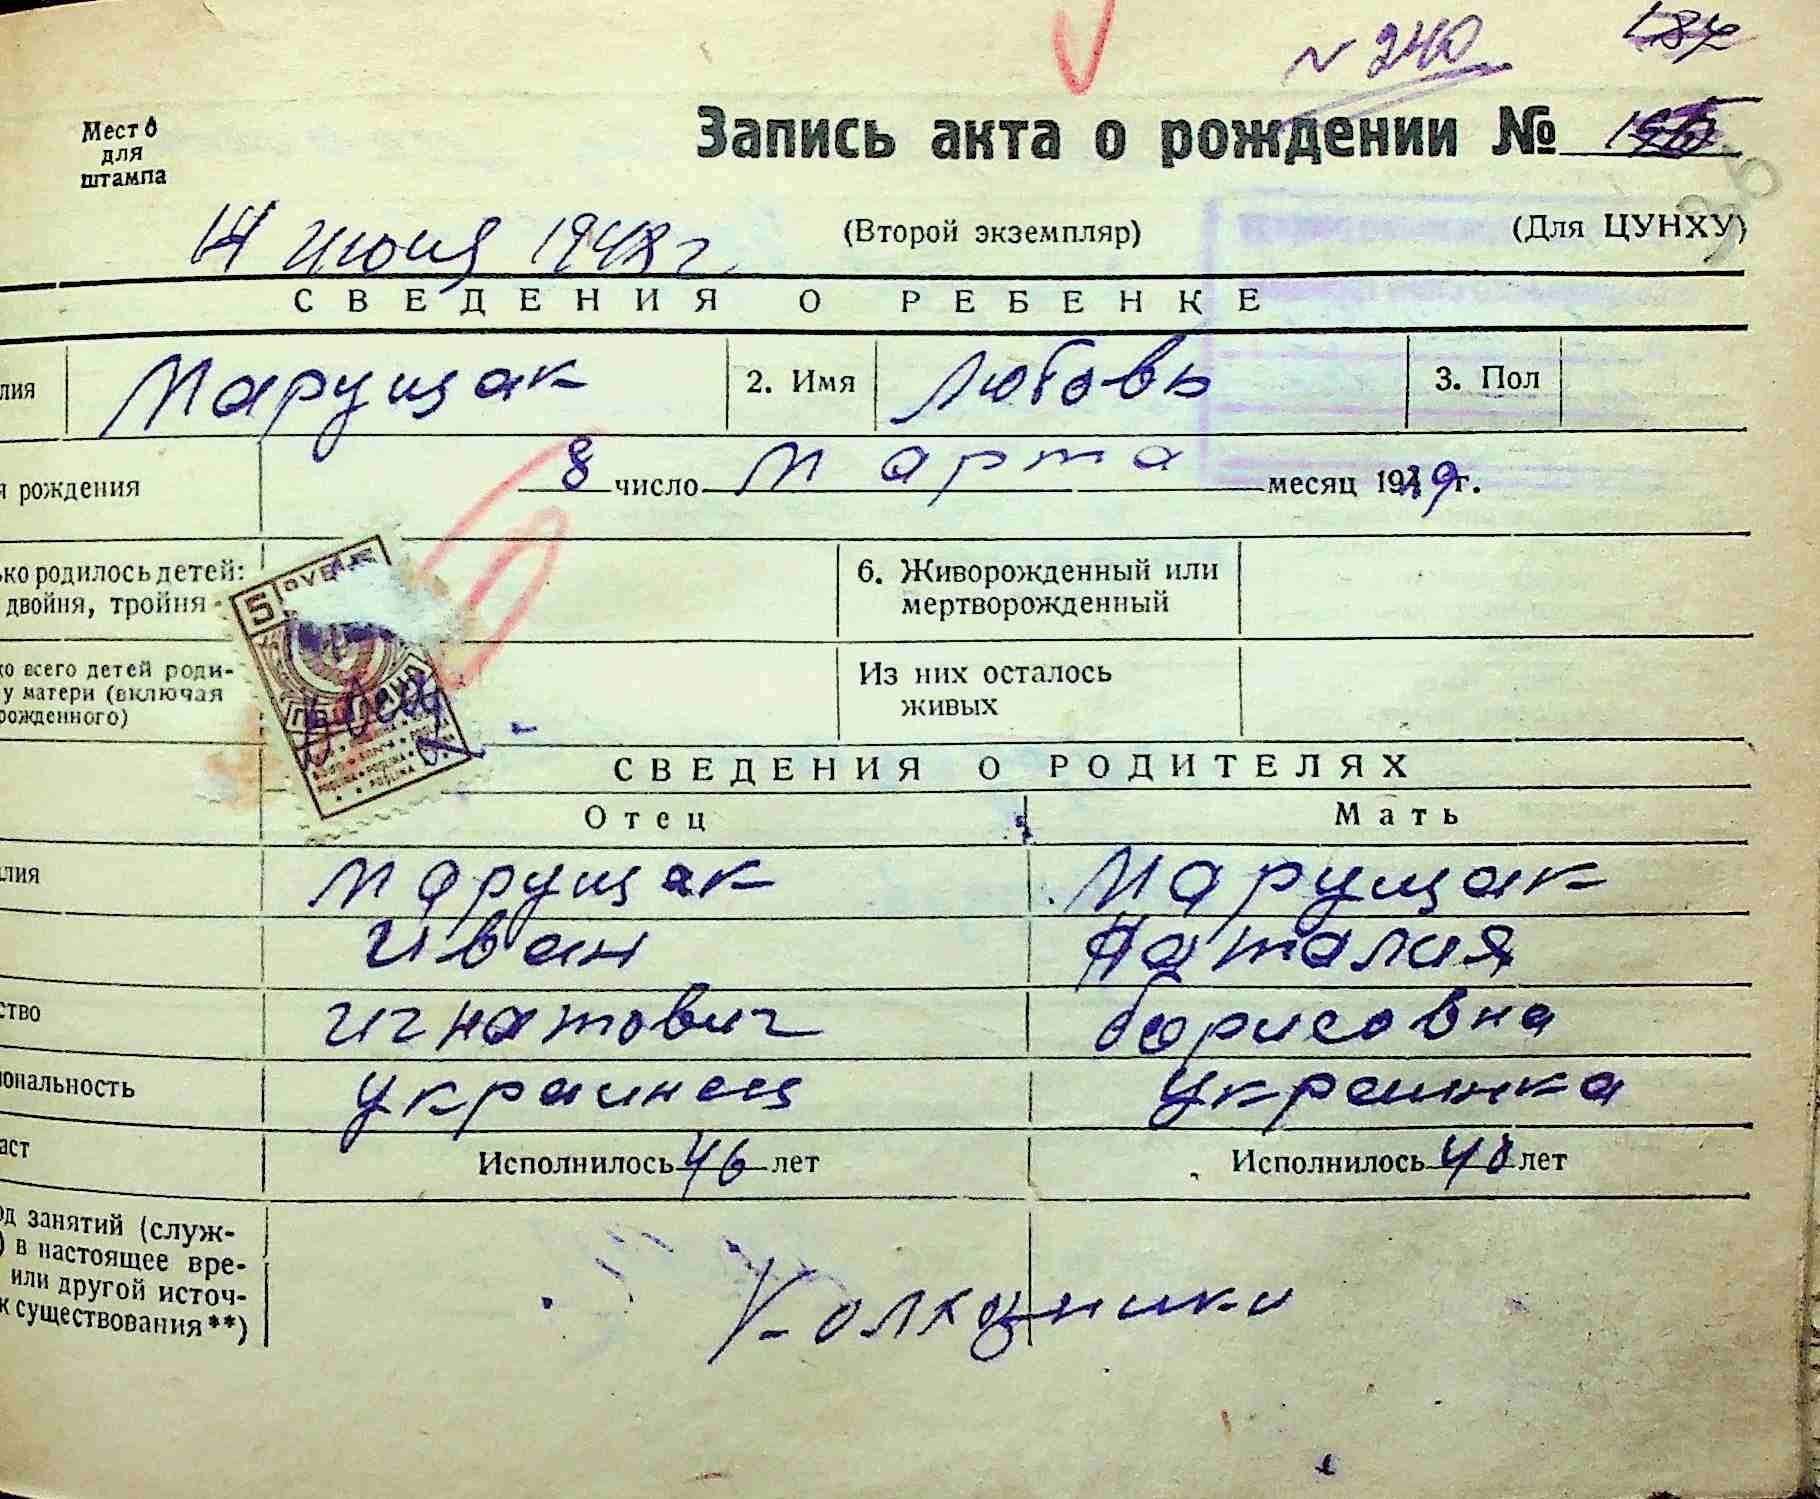 № 240
Место
для
штампа
Запись акта о рождении №
14 июня 1948 г
(Второй экземпляр)
(Для ЦУНХУ)
СВЕДЕНИЯ О РЕБЕНКЕ
лия Марущак 2. Имя Любовь 3. Пол
я рождения 8 число Марта месяц 1929 г.
ько родилось детей:
двойня, тройня
6. Живорожденный или
мертворожденный
ко всего детей роди-
у матери (включая
рожденного)
Из них осталось
живых
5
СВЕДЕНИЯ О РОДИТЕЛЯХ
Отец Мать
лия Марущак Марущак
Иван Наталия
ство Игнатович Борисовна
иональность украинец украинка
аст Исполнилось 46 лет Исполнилось 40 лет
од занятий (служ-
) в настоящее вре-
или другой источ-
к существования**)
Колхозники